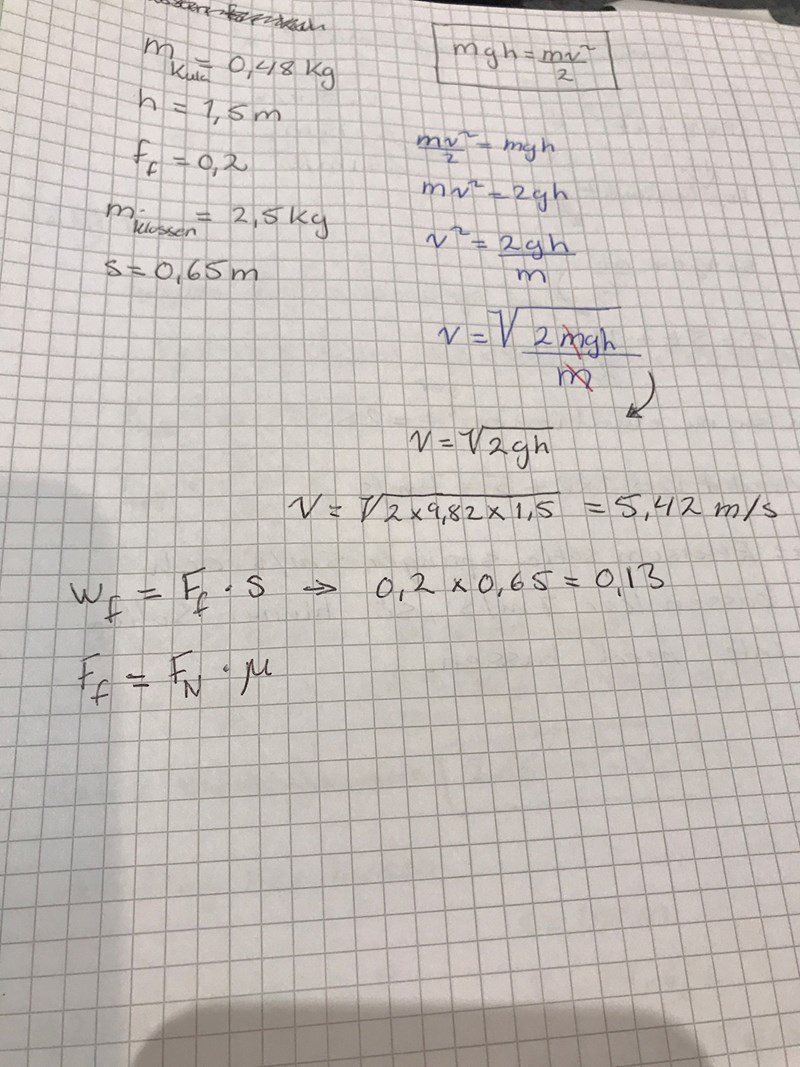 m_kula = 0,48 kg
h = 1,5 m
f_f = 0,2
m_klossen = 2,5 kg
s = 0,65 m
mgh = mv²/2
mv²/2 = mgh
mv² = 2gh
v² = 2gh/m
v = √(2mgh/m)
v = √2gh
v = √2×9,82×1,5 = 5,42 m/s
W_f = F_f · s → 0,2 × 0,65 = 0,13
F_f = F_N · μ